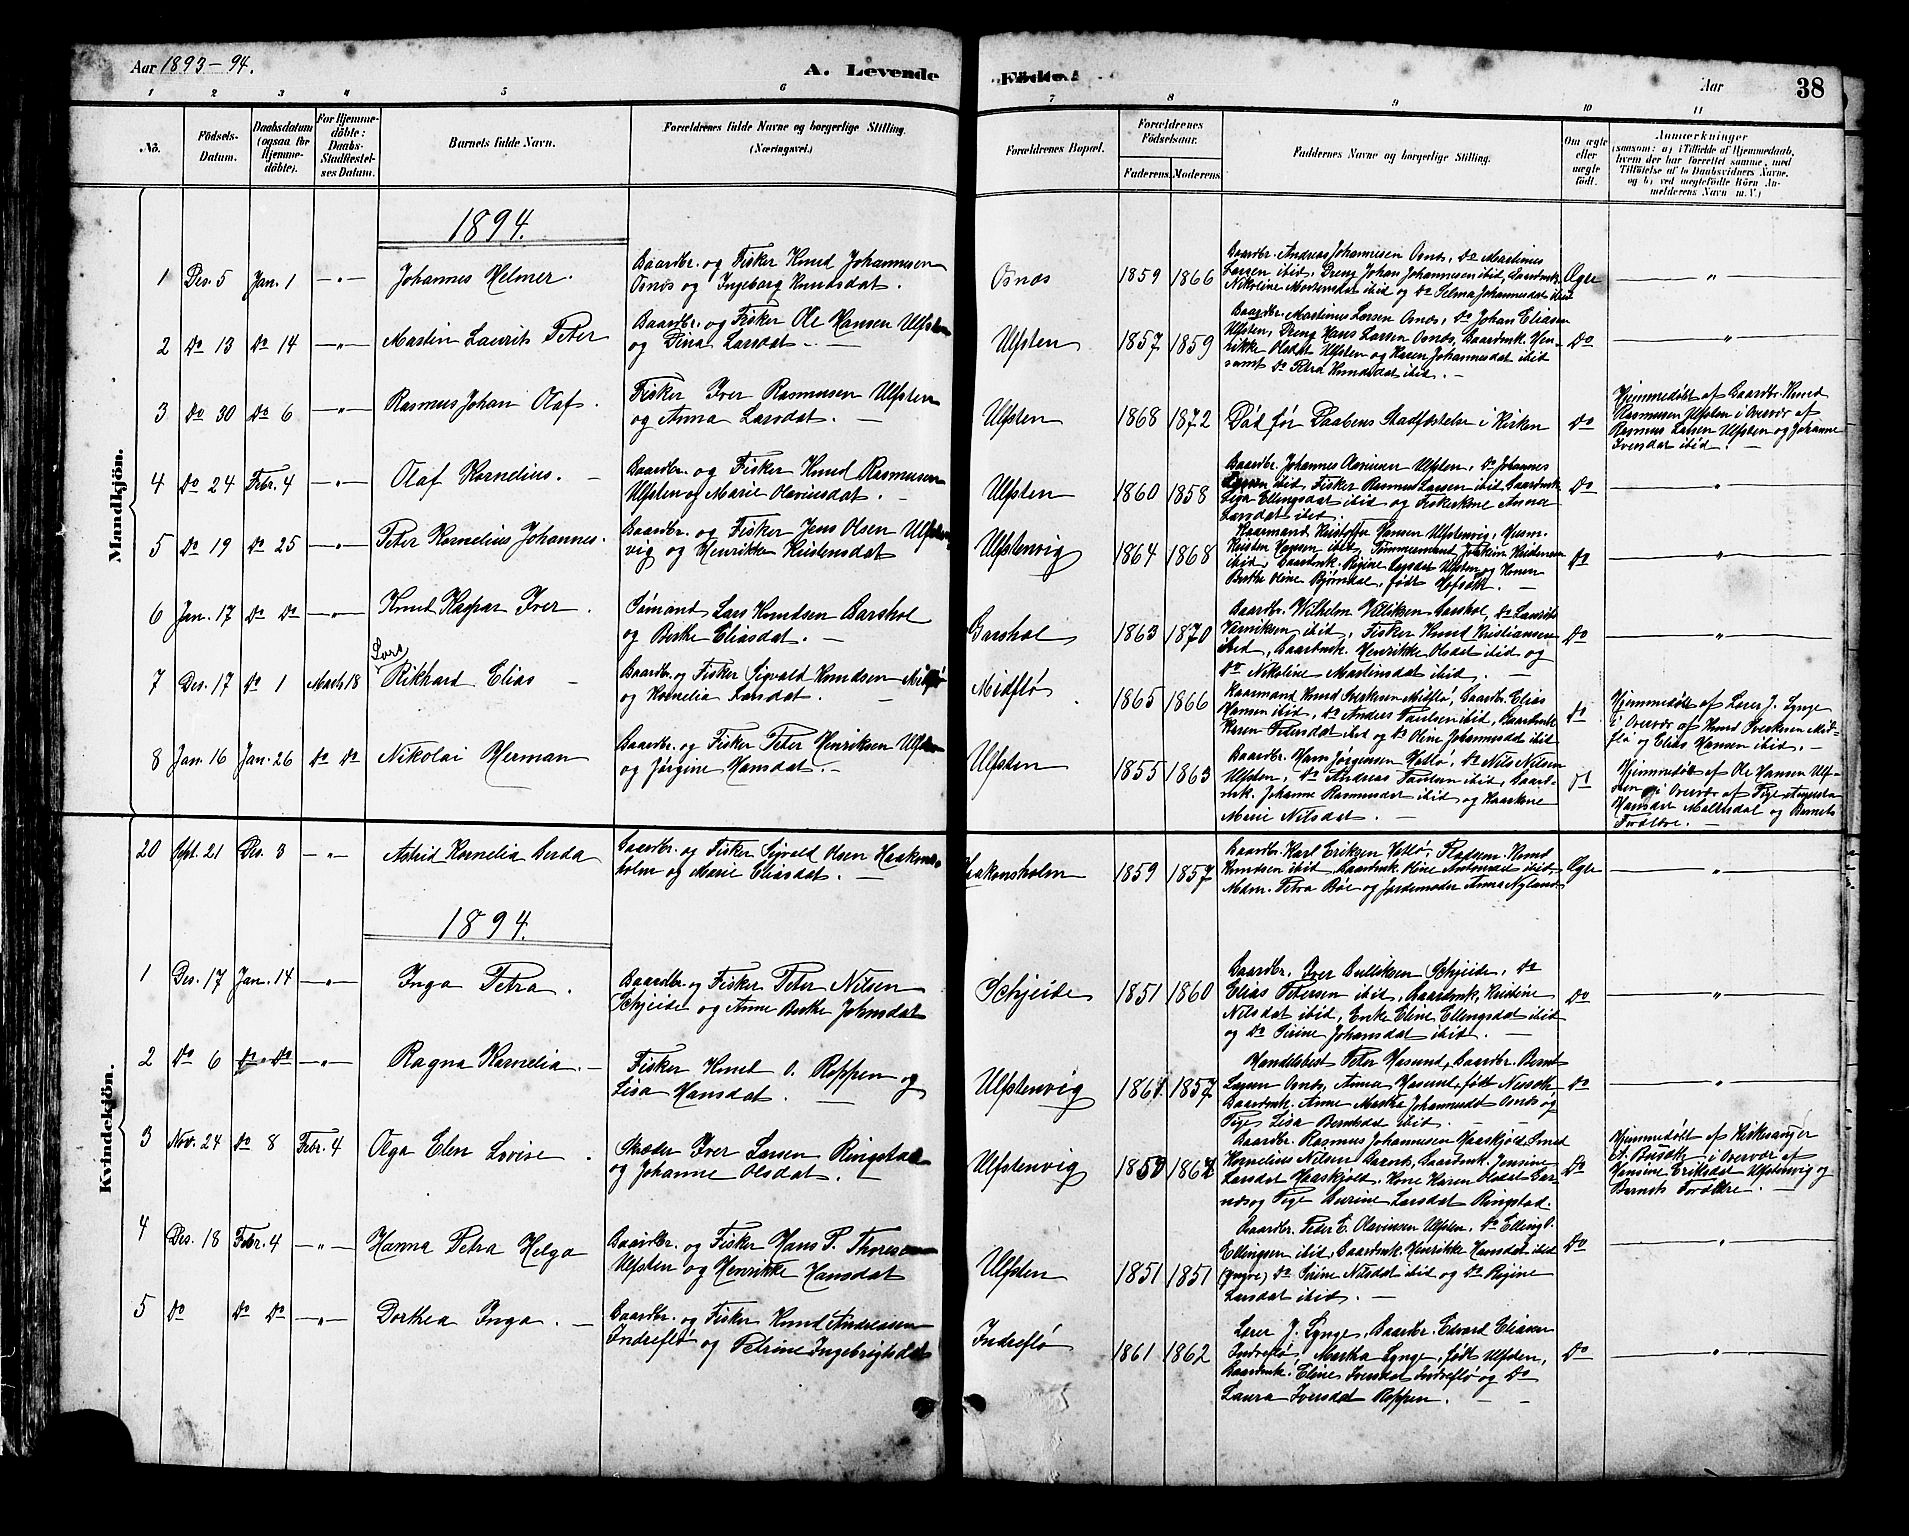 Aar 1893-94.
A. Levende
Födte.
Aar
38
1 2 3 4 5 6 7 8 9 10 11
No.
Födsels-
Datum.
Daabsdatum
(ogsaa for
Hjemme-
döbte).
For Hjemme-
döbte:
Daabs-
Stadfæstel-
ses Datum.
Barnets fulde Navn.
Forældrenes fulde Navne og borgerlige Stilling.
(Næringsvei.)
Forældrenes Bopæl.
Forældrenes
Födselsaar.
Faderens. Moderens.
Faddernes Navne og borgerlige Stilling.
Om ægte
eller
uægte
födt.
Anmærkninger
(saasom: a) i Tilfælde af Hjemmedaab,
hvem der har forrettet samme, med
Tilföielse af to Daabsvidners Navne,
og b) ved uegtefödte Börn An-
melderens Navn m. V.)
Mandkjön.
1894.
1 Des. 5 Jan. 1 — " — Johannes Helmer.
Baardbr. og Fisker Knud Johannesen
Osnes og Ingeborg Knudsdat.
Osnes 1859 1866
Baardbr. Andreas Johannesen Osnes, Do Martinus
Larsen ibid, Dreng Johan Johannesen ibid, Baardmk.
Nikoline Mortensdat ibid og Do Selma Johannesdat ibid
Ægte — " —
2 Do 13 Do 14 — " — Martin Laurits Peter
Baardbr. og Fisker Ole Hansen Ulfsten
og Dina Larsdat. —
Ulfsten 1857 1859
Baardbr. Martinus Larsen Osnes, Do Johan Eliasen
Ulfsten, Dreng Hans Larsen Osnes, Baardmk. Hen-
rikke Olsdat Ulfsten og Karen Johannesdat ibid
samt Do Petra Knudsdat ibid. —
Do — " —
3 Do 30 Do 6 — " — Rasmus Johan Olaf.
Fisker Iver Rasmusen Ulfsten
og Anna Larsdat. —
Ulfsten 1868 1872
Död før Daabens Stadfæstelse i Kirken
Do
Hjemmedöbt af Baardbr. Knud
Rasmusen Ulfsten i Overvær af
Rasmus Larsen Ulfsten og Johanne
Iversdat ibid. —
4 Do 24 Febr. 4 — " — Olaf Kornelius. —
Baardbr. og Fisker Knud Rasmusen
Ulfsten og Marie Olariusdat. —
Ulfsten 1860 1858
Baardbr. Johannes Ulfsten, Do Johannes
Larsen ibid, Fisker Rasmus Larsen ibid, Baardmk.
Lisa Ellingsdat ibid og Fiskerkone Anna
Larsdat ibid.
Do — " —
5 Do 19 Do 25 — " — Peter Kornelius Johannes.
Baardbr. og Fisker Jens Olsen Ulfsten-
vig og Henrikke Kristensdat
Ulfstenvig 1864 1868
Kaarmand Kristoffer Hansen Ulfstenvig, Husm.
Kristen Hansen ibid, Tömmermand Joakim Kristensen
ibid, Baardmk. Regine Larsdat Ulfsten og Konen
Berthe Oline Bjørndal, født Hofsæth. —
Do — " —
6 Jan. 17 Do Do — " — Knud Kaspar Iver.
Sømand Lars Knudsen Garshol
og Berte Eliasdat. —
Garshol 1863 1870
Baardbr. Wilhelm Garshol, Do Laurits
ibid, Fisker Knud Kristiansen
ibid, Baardmk. Henrikke Olsdat ibid og
Do Nikoline Martinsdat ibid. —
Do — " —
7 Des. 17 Do 1 Marts 18
Lars
Rikhard Elias —
Baardbr. og Fisker Sigvald Knudsen Midflø
og Kornelia Larsdat. —
Midflø 1865 1866
Kaarmand Knud Syversen Midflø, Baardbr. Elias
Hansen ibid, Do Andreas Paulsen ibid, Baardmk.
Karen Petersdat ibid og Do Oline Johannesdat ibid
Do
Hjemmedöbt af Lærer J. Lynge
i Overvær af Knud Syversen Mid-
flø og Elias Hansen ibid. —
8 Jan. 16 Jan. 26 Do Do Nikolai Herman
Baardbr. og Fisker Peter Henriksen Ulfsten
og Jørgine Hansdat. —
Ulfsten 1855 1863
Baardbr. Hans Jørgensen Hatlø, Do Nils Nilsen
Ulfsten, Do Andreas Paulsen ibid, Baard-
mk. Johanne Rasmusdat ibid og Kaarkone
Marie Nilsdat. —
Do
Hjemmedöbt af Ole Hansen Ulf-
sten i Overvær af Pige Augusta
Hansdat og Barnets
Forældre. —
Kvindekjön.
20 Sept. 21 Des. 3 — " — Astrid Kornelia Gerda
Baardbr. og Fisker Sigvald Olsen Haakons-
holm og Marie Eliasdat. —
Haakonsholm 1859 1857
Baardbr. Karl Eriksen Hatlø, Knud
Knudsen ibid, Baardmk. Oline Antonsdat ibid,
Mdm. Petra Bøe og Jordemoder Anna Nyland.
Ægte — " —
1894.
1 Des. 17 Jan. 14 — " — Inga Petra.
Baardbr. og Fisker Peter Nilsen
Schjeide og Anne Berthe Johnsdat
Schjeide 1851 1860
Baardbr. Iver Schjeide, Do
Elias Petersen ibid, Baardmk. Kristine
Nilsdat ibid, Enke Eline Ellingsdat ibid
og Do Sirine Johansdat ibid. —
Do — " —
2 Do 6 Do Do — " — Ragna Kornelia. —
Fisker Knud O. Roppen og
Lisa Hansdat. —
Ulfstenvig 1861 1857
Handelsbest. Peter Hasund, Baardbr. Bernt
Larsen Osnes, Anna Hasund, født
Baardmk. Anne Marthe Johannesdat Osnes og
Pige Lisa Berntsdat ibid. —
Do — " —
3 Nov. 24 Do 8 Febr. 4 Olga Elen Lovise.
Skræder Iver Larsen Ringstad
og Johanne Olsdat. —
Ulfstenvig
Baardbr. Rasmus Johannesen Haaskjold, Smed
Kornelius Nilsen Baardmk. Jensine
Larsdat Haaskjold, Kone Karen Olsdat Gar-
nes og Pige Gurine Larsdat Ringstad.
Do
Hjemmedöbt af Kirkesanger
i Overvær af
Hansine Eriksdat Ulfstenvig og
Barnets Forældre. —
4 Des. 18 Febr. 4 — " — Hanna Petra Helga
Baardbr. og Fisker Hans P. Thoresen
Ulfsten og Henrikke Hansdat
Ulfsten 1851 1851
Baardbr. Peder E. Ulfsten, Do Elling O.
Ellingsen ibid, Baardmk. Henrikke Hansdat ibid
(yngre) Do Sirine Nilsdat ibid og Do Regine
Larsdat ibid. —
Do — " —
5 Do Do Do — " — Dorthea Inga. —
Baardbr. og Fisker Knud Andreasen
Indreflø og Petrine Ingebrigtsdat
Indreflø 1861 1862
Lærer J. Lynge, Baardbr. Edvard Eliasen
Indreflø, Martha Lynge, født Ulfsten,
Baardmk. Eline Iversdat Indreflø og Do
Laura Iversdat Roppen. —
Do — " —